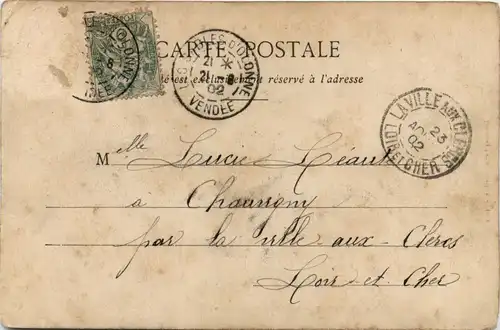 CARTE POSTALE
est exclusivement réservé à l'adresse
LES SABLES D'OLONNE
21
21 - 8
02
VENDÉE
LA VILLE AUX CLERCS
23
AOU
02
LOIR-ET-CHER
Melle Lucie Réault
à Chauvigny
par la ville aux Clercs
Loir et Cher